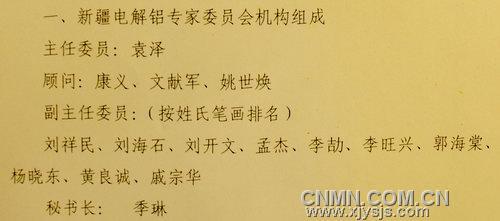 一、新疆电解铝专家委员会机构组成
主任委员：袁泽
顾问：康义、文献军、姚世焕
副主任委员：（按姓氏笔画排名）
刘祥民、刘海石、刘开文、孟杰、李劼、李旺兴、郭海棠、
杨晓东、黄良诚、戚宗华
秘书长：季琳
CNMN.COM.CN
www.xjysjs.com